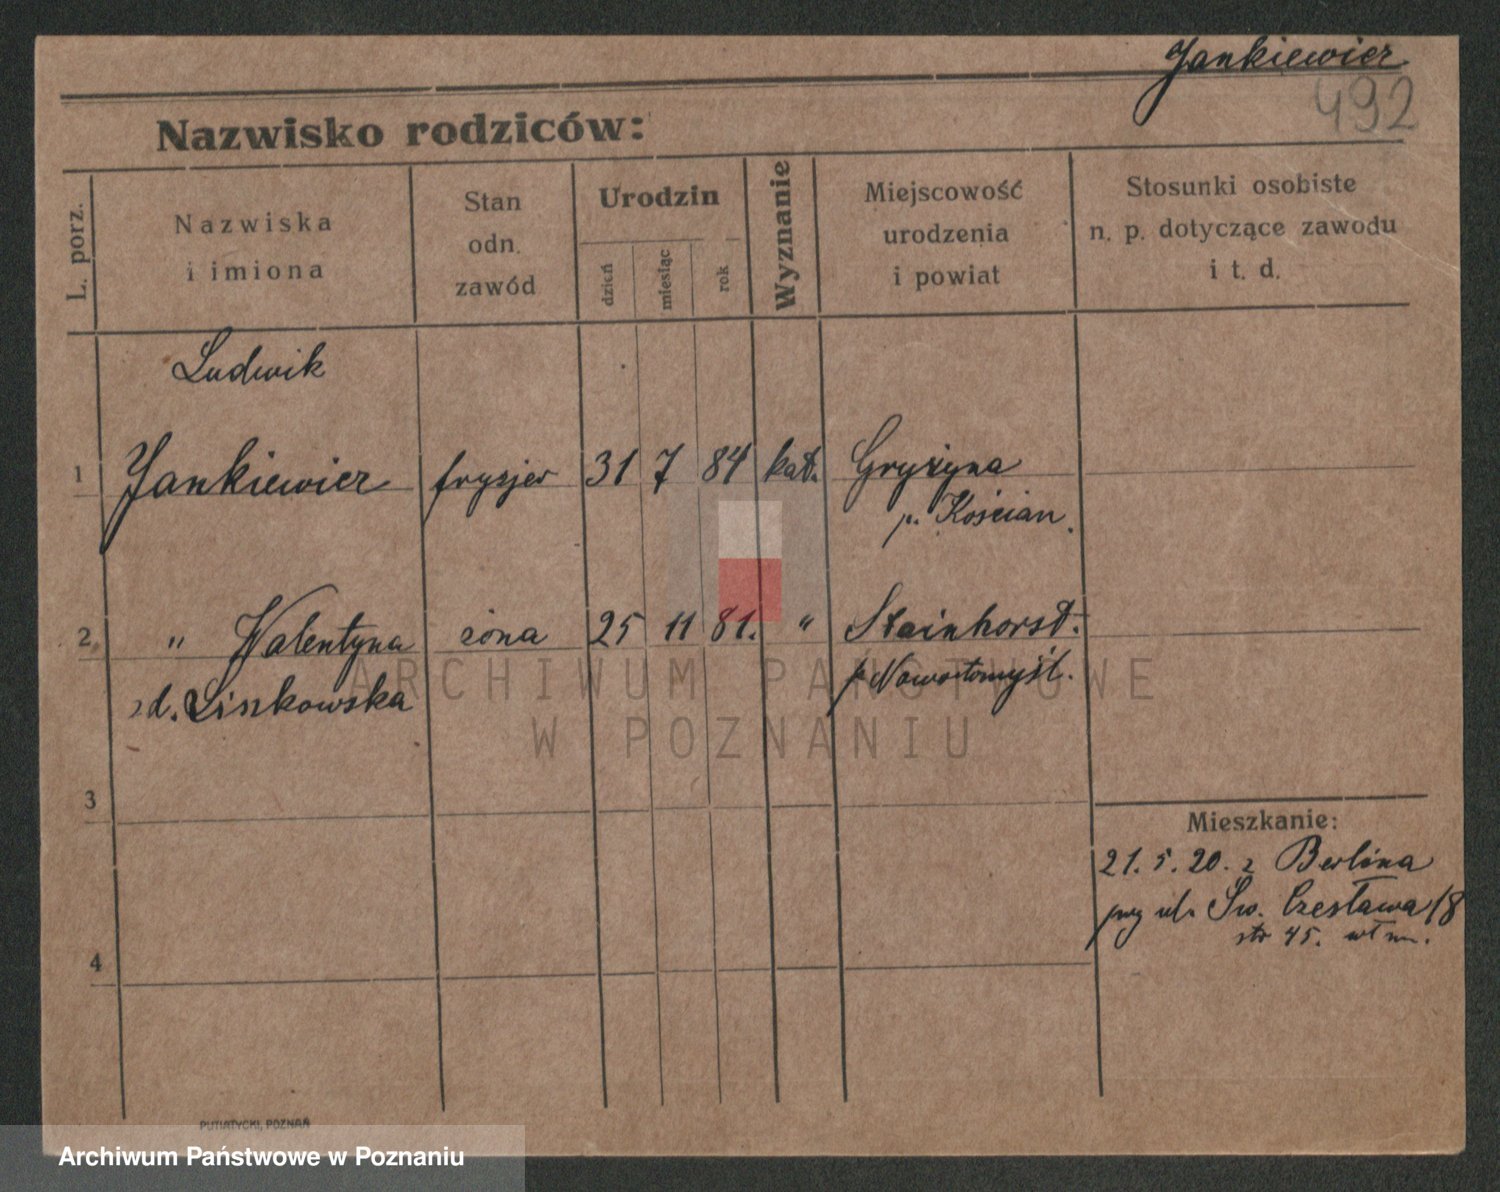 Jankiewicz
492
Nazwisko rodziców:
L. porz.
Nazwiska
i imiona
Stan
odn.
zawód
Urodzin
dzień
miesiąc
rok
Wyznanie
Miejscowość
urodzenia
i powiat
Stosunki osobiste
n. p. dotyczące zawodu
i t. d.
Ludwik
1 Jankiewicz fryzjer 31 7 84 kat. Gryżyna
p. Kościan.
2 " Walentyna żona 25 11 81. " Steinhorst.
zd. Linkowska p Nowotomyśl.
3
4
Mieszkanie:
21. 5. 20. z Berlina
przy ul. Św. Czesława 18
str 45.
PUTIATYCKI, POZNAŃ
ARCHIWUM PAŃSTWOWE
W POZNANIU
Archiwum Państwowe w Poznaniu